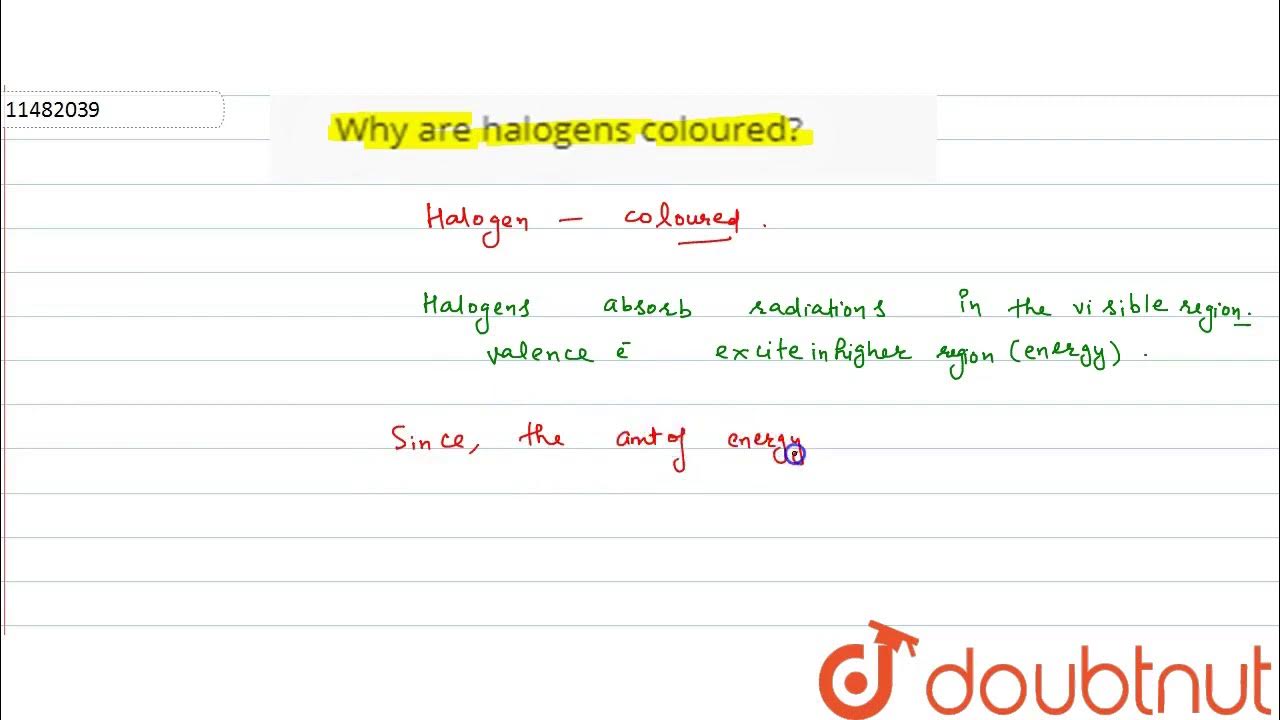 11482039
Why are halogens coloured?
Halogen — coloured.
Halogens absorb radiations in the visible region.
valence ē excite in higher region (energy).
Since, the amt of energy
doubtnut